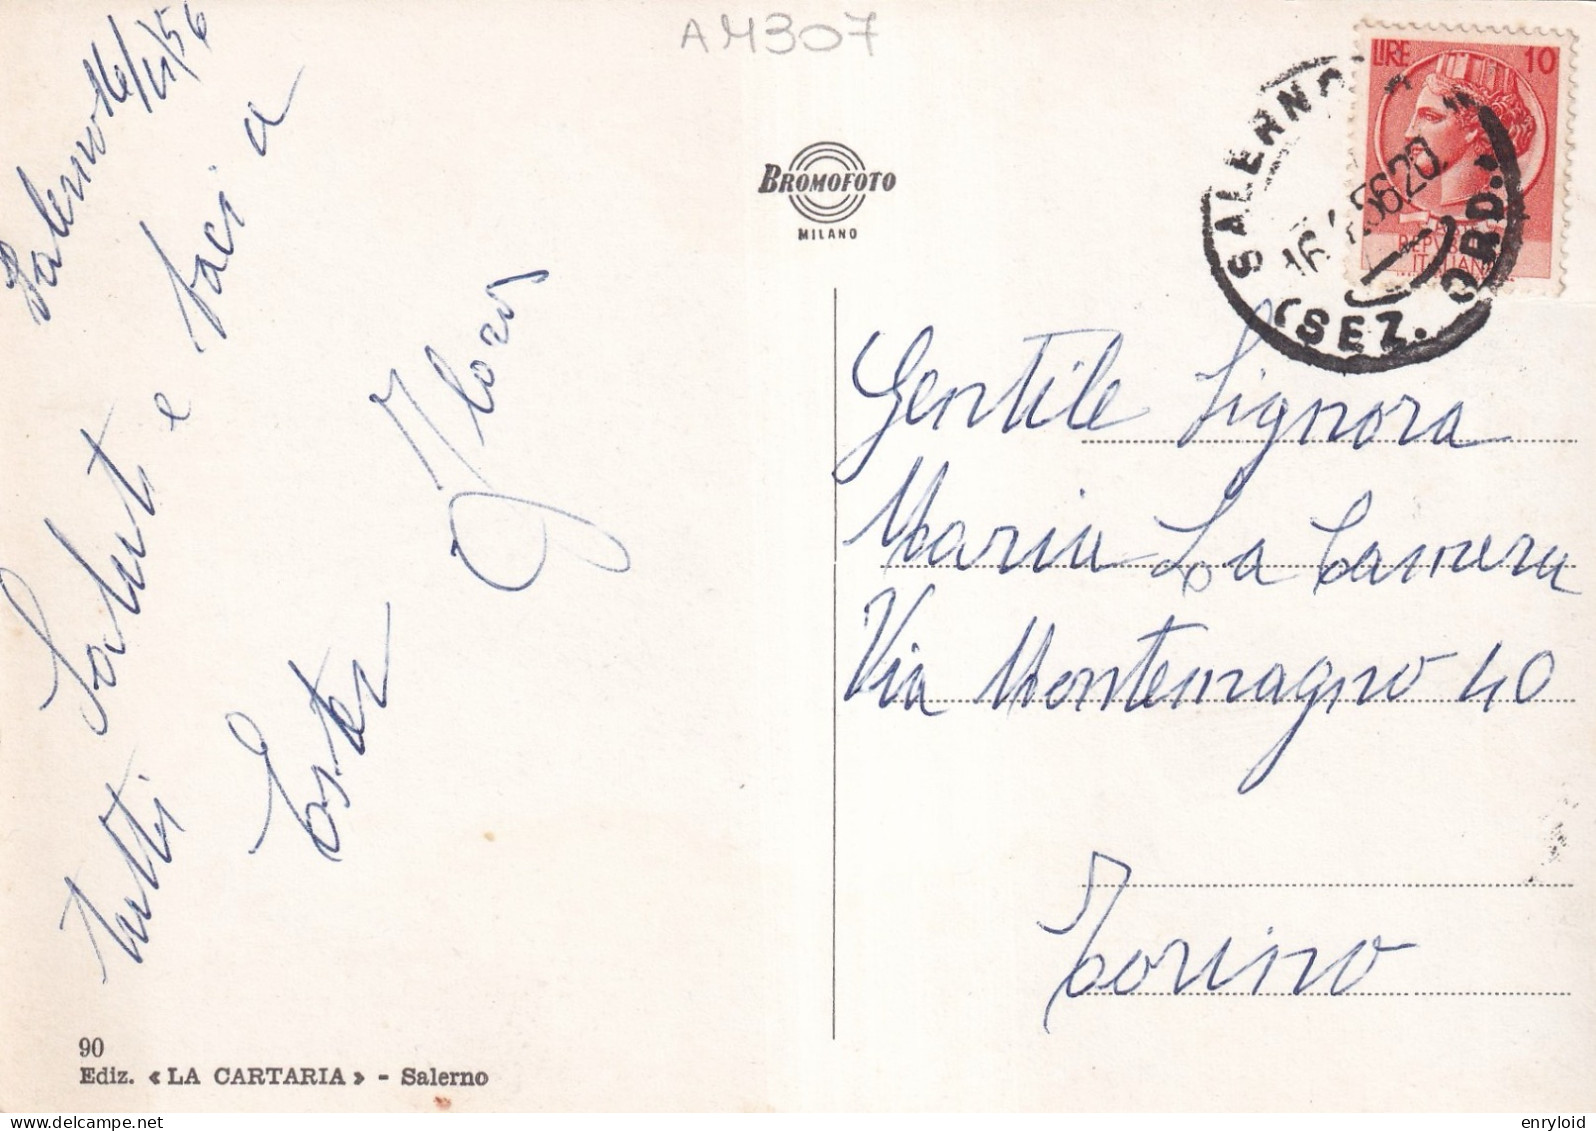 AM307
Salerno 16/4/56
Saluti e baci a
tutti
Ester Flores
90
Ediz. « LA CARTARIA » - Salerno
BROMOFOTO
MILANO
LIRE 10
REPVBBLICA
ITALIANA
SALERNO
16.4.56.20
(SEZ. ORD.)
Gentile Signora
Maria La
Via Montemagno 40
Torino
enryloid